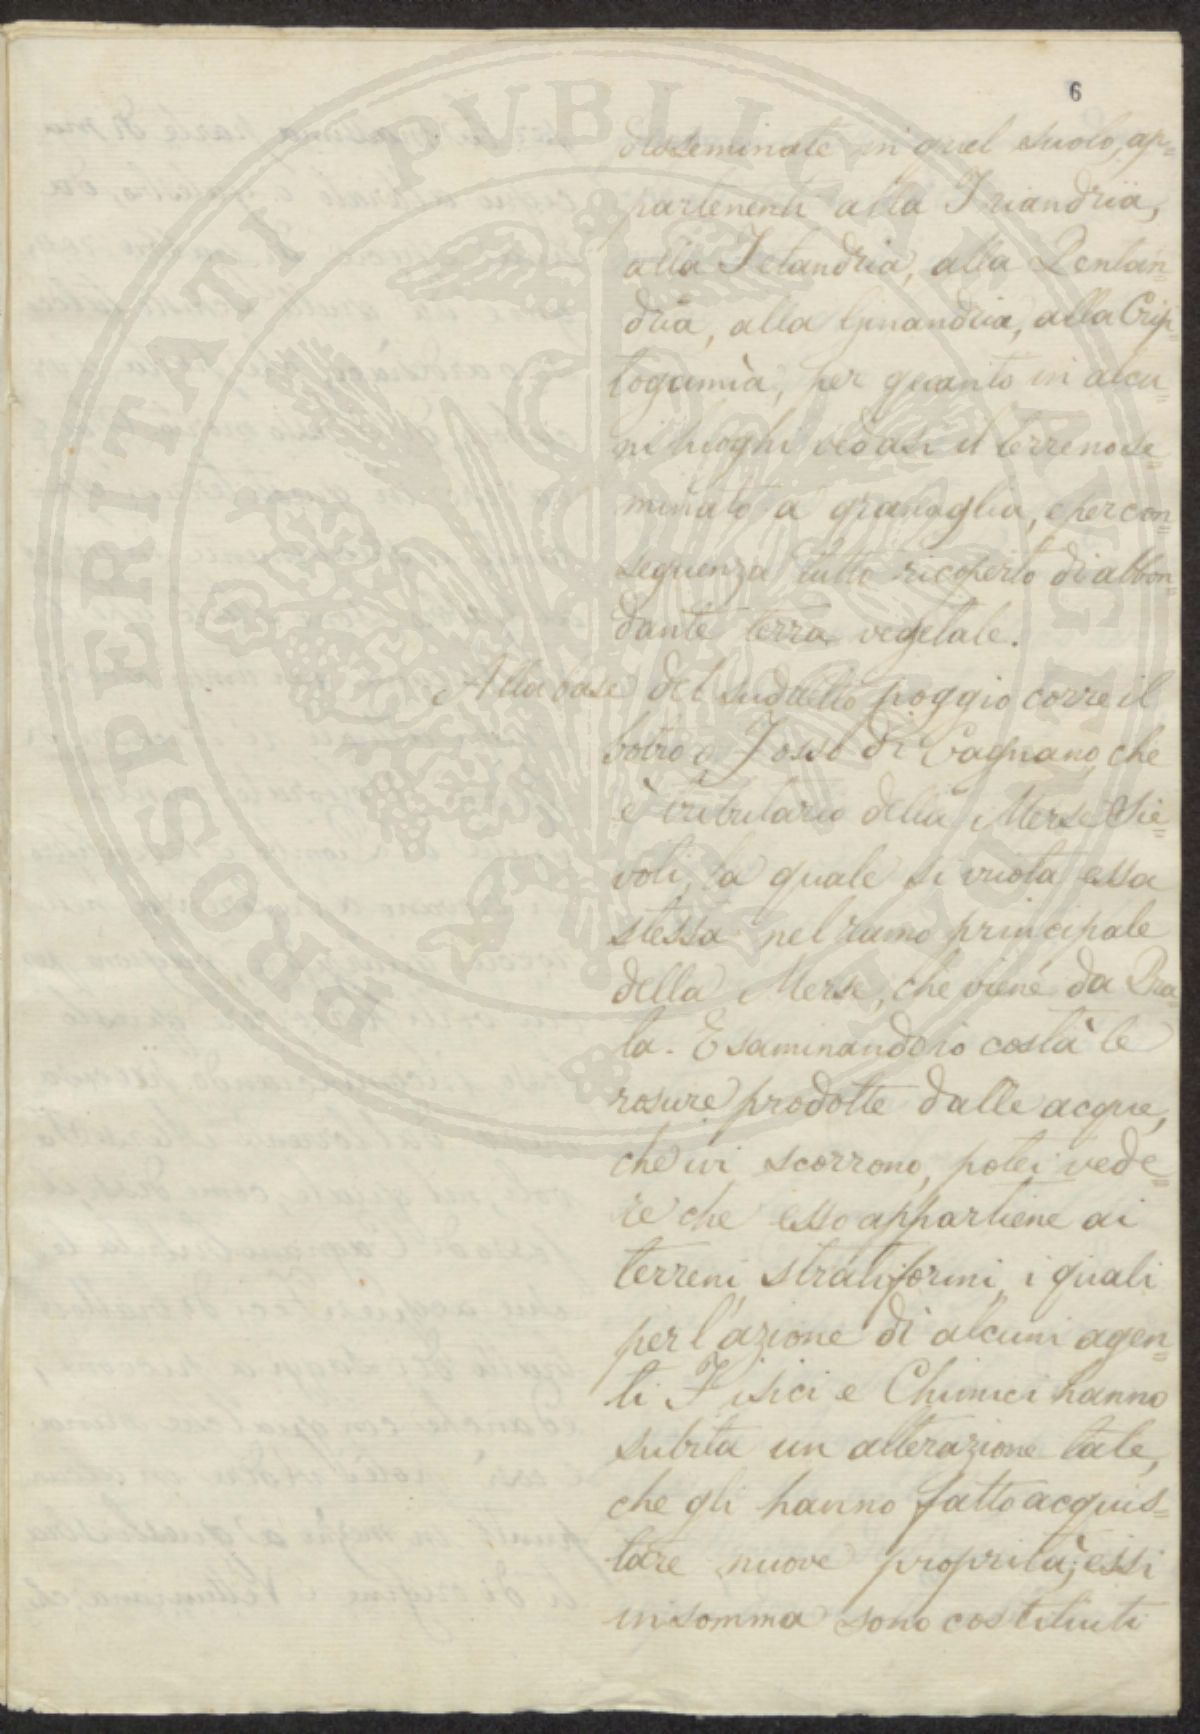 6
disseminate in quel suolo, ap=
partenenti alla Triandria,
alla Tetandria, alla Pentan=
dria, alla Ginandria, alla Crip=
togamìa, per quanto in alcu=
ni luoghi vedasi il terreno se=
minato a granaglia, e per con=
seguenza tutto ricoperto di abbon=
dante terra vegetale.
Alla base del suddetto poggio corre il
botro o Fosso di Cagnano, che
è tributario della Merse Sie=
voli, la quale si vuota essa
stessa nel ramo principale
della Merse, che viene da Pra
ta. Esaminando io costà le
rosure prodotte dalle acque,
che ivi scorrono, potei vede=
re che esso appartiene ai
terreni stratiformi, i quali
per l'azione di alcuni agen=
ti Fisici e Chimici hanno
subita un alterazione tale,
che gli hanno fatto acquis=
tare nuove proprità; essi
insomma sono costituiti
PROSPERITATI PUBLICAE AUGENDAE